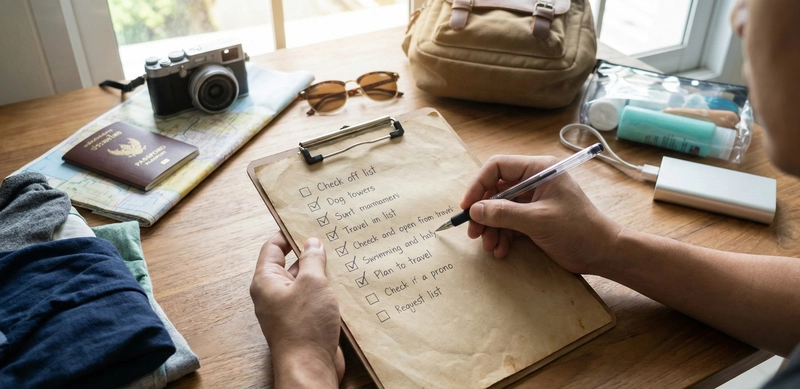 Check off list
Dog towers
Surt marmameri
Travel im list
Cheeck and open from travel
Swimming and haty
Plan to travel
Check if a prono
Reqest list